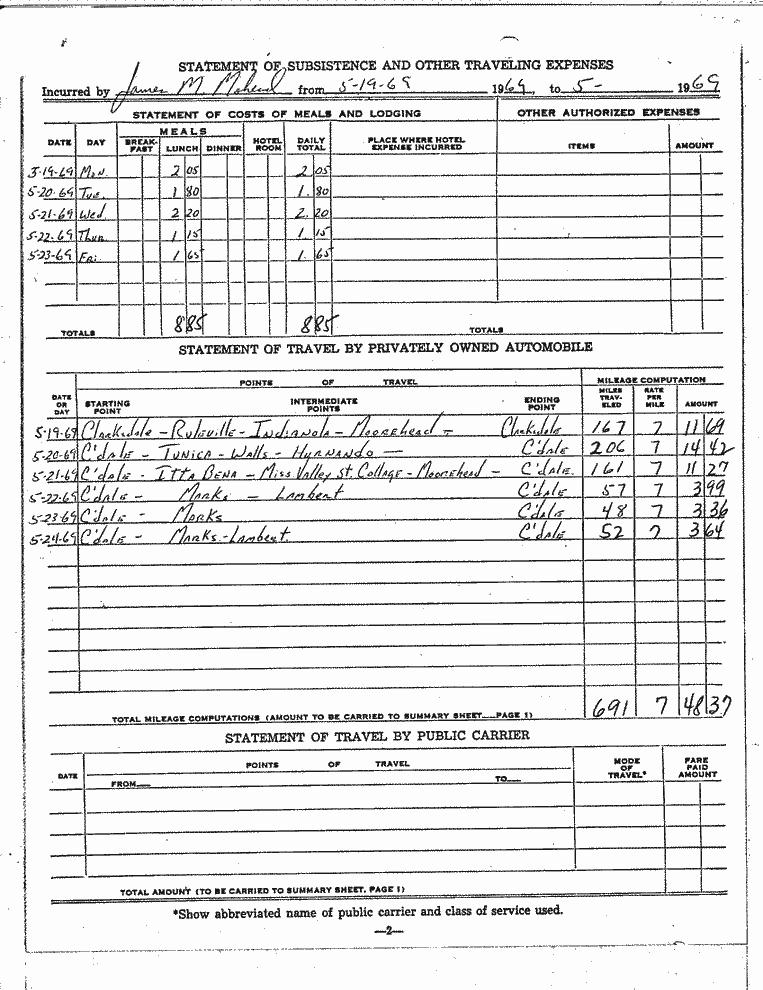 STATEMENT OF SUBSISTENCE AND OTHER TRAVELING EXPENSES
Incurred by James M. Mohead from 5-19-69 1969, to 5- 1969
STATEMENT OF COSTS OF MEALS AND LODGING OTHER AUTHORIZED EXPENSES
DATE DAY MEALS BREAK-FAST LUNCH DINNER HOTEL ROOM DAILY TOTAL PLACE WHERE HOTEL EXPENSE INCURRED ITEMS AMOUNT
5-19-69 Mon. 2 05 2 05
5-20-69 Tue. 1 80 1. 80
5-21-69 Wed. 2 20 2. 20
5-22-69 Thur. 1 15 1. 15
5-23-69 Fri. 1 65 1. 65
TOTALS 8 85 8 85 TOTALS
STATEMENT OF TRAVEL BY PRIVATELY OWNED AUTOMOBILE
POINTS OF TRAVEL MILEAGE COMPUTATION
DATE OR DAY STARTING POINT INTERMEDIATE POINTS ENDING POINT MILES TRAV-ELED RATE PER MILE AMOUNT
5-19-69 Clarksdale - Ruleville - Indianola - Moorehead - Clarksdale 167 7 11 69
5-20-69 C'dale - Tunica - Walls - Hernando - C'dale 206 7 14 42
5-21-69 C'dale - Itta Bena - Miss Valley St. Collage - Moorehead - C'dale. 161 7 11 27
5-22-69 C'dale - Marks - Lambert C'dale 57 7 3 99
5-23-69 C'dale - Marks C'dale 48 7 3 36
5-24-69 C'dale - Marks - Lambert. C'dale 52 7 3 64
TOTAL MILEAGE COMPUTATIONS (AMOUNT TO BE CARRIED TO SUMMARY SHEET.....PAGE 1) 691 7 48 37
STATEMENT OF TRAVEL BY PUBLIC CARRIER
DATE POINTS OF TRAVEL MODE OF TRAVEL* FARE PAID AMOUNT
FROM— TO—
TOTAL AMOUNT (TO BE CARRIED TO SUMMARY SHEET, PAGE 1)
*Show abbreviated name of public carrier and class of service used.
—2—